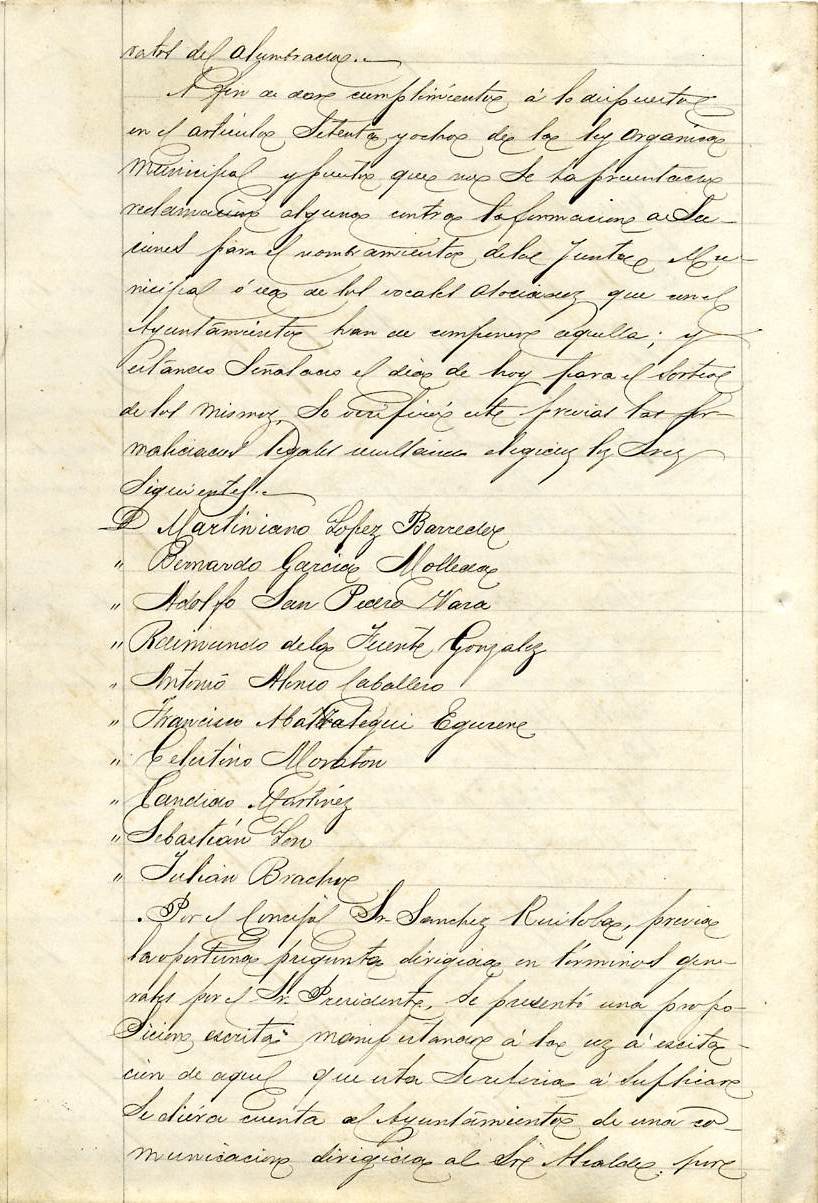 ratos del alumbrado.
A fin de dar cumplimiento á lo dispuesto
en el articulo Setenta y ocho de la ley organica
Municipal y puesto que no se ha presentado
reclamación alguna contra la formacion de Sec-
ciones para el nombramiento de la Junta Mu-
nicipal ó sea de los vocales asociados que con el
Ayuntamiento han de componer aquella; y
estando Señalado el dia de hoy para el Sorteo
de los mismos, Se verificó este previas las for-
malidades legales resultando elegidos los Sres
Siguientes.
D Martiniano Lopez Barreda
" Bernardo Garcia Molleda
" Adolfo San Pedro Vara
" Raimundo de la Fuente Gonzalez
" Antonio Alonso Caballero
" Francisco Eguren
" Celestino Moraton
" Candido Martinez
" Sebastián Lon
" Julian Bracho
Por el Concejal Sr. Sanchez Ruiloba, previa
la oportuna pregunta dirigida en términos gene-
rales por el Sr. Presidente, Se presentó una propo-
Sicion escrita manifestando á la vez á escita-
ción de aquel que esta Se reducia á Suplicar
Se diera cuenta al Ayuntamiento de una co-
municacion dirigida al Sr Alcalde, por